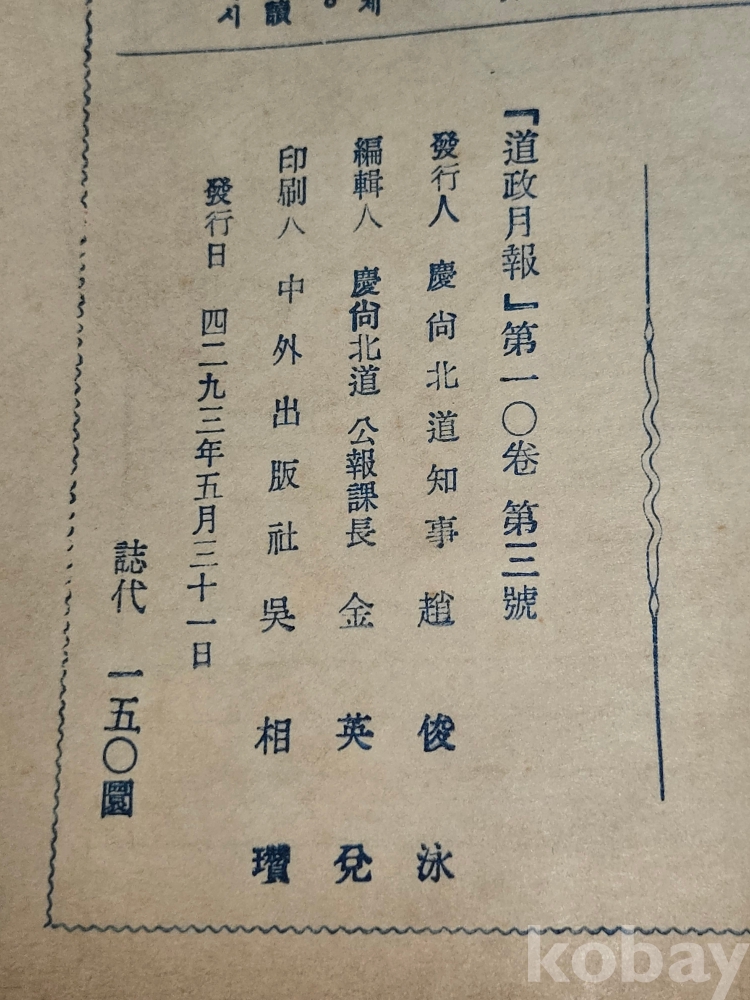 『道政月報』第一〇卷 第三號
發行人 慶尙北道知事 趙俊泳
編輯人 慶尙北道 公報課長 金英兌
印刷人 中外出版社 吳相瓚
發行日 四二九三年五月三十一日
誌代 一五〇圜
시
讀
kobay